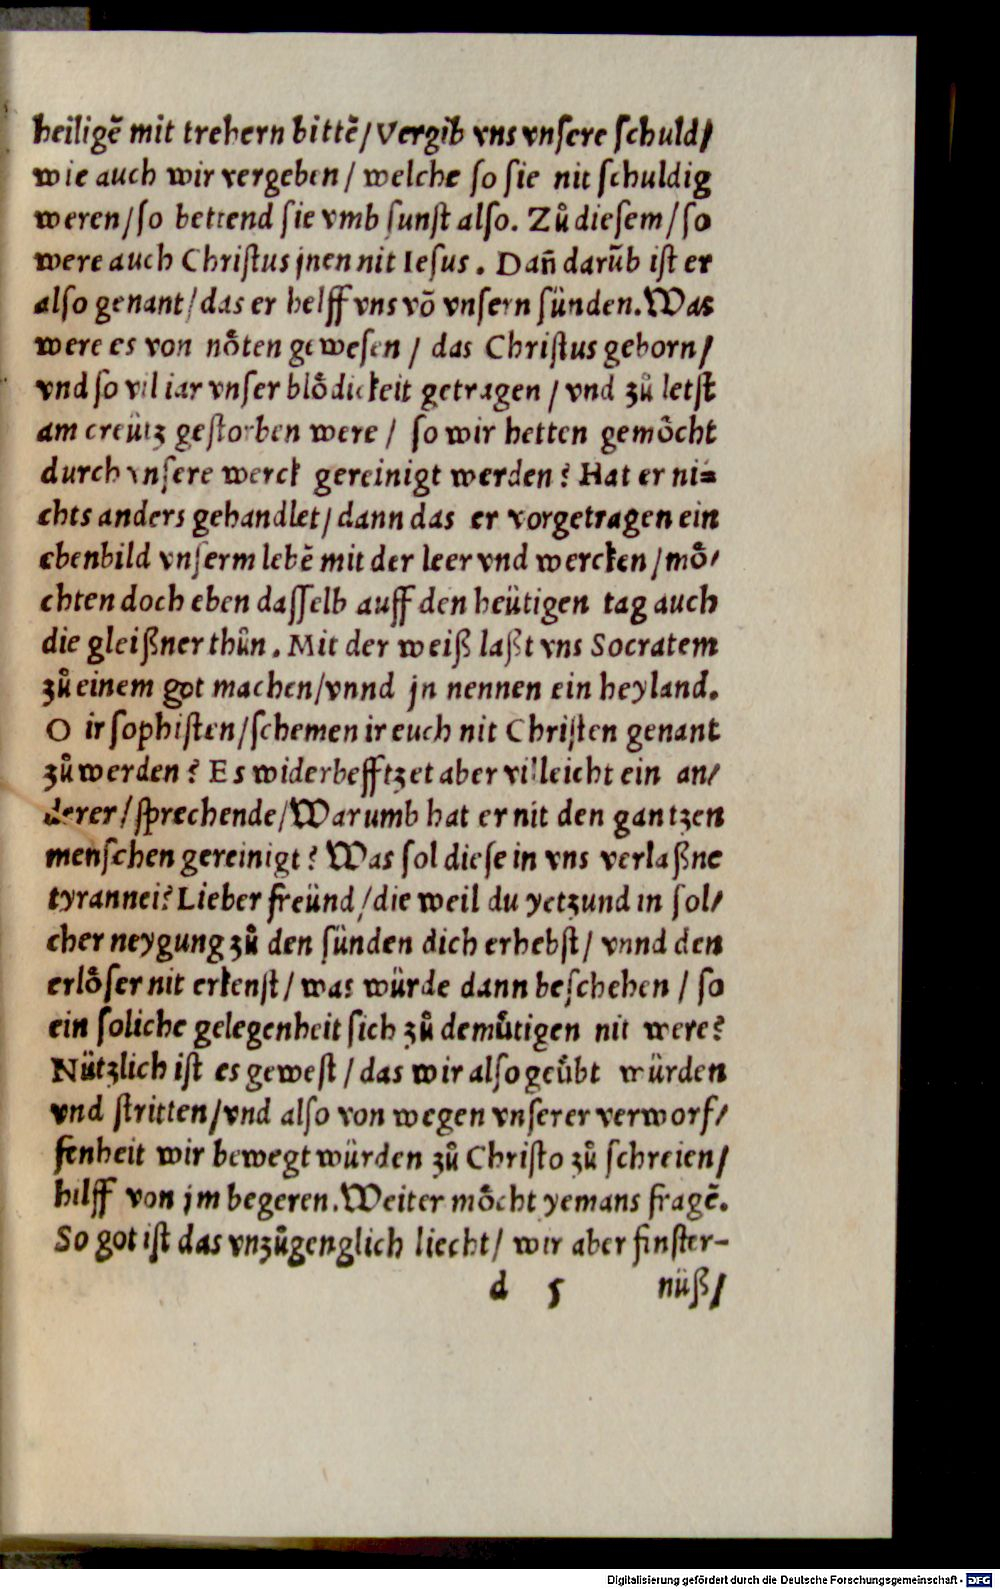 heiligẽ mit trehern bittẽ/Vergib vns vnſere ſchuld/
wie auch wir vergeben/ welche ſo ſie nit ſchuldig
weren/ſo bettend ſie vmb ſunſt alſo. Zů dieſem/ſo
were auch Chriſtus jnen nit Ieſus. Dañ darũb iſt er
alſo genant/das er helff vns võ vnſern ſünden. Was
were es von noͤten geweſen/ das Chriſtus geborn/
vnd ſo vil iar vnſer bloͤdickeit getragen/ vnd zů letſt
am creütz geſtorben were/ ſo wir hetten gemoͤcht
durch vnſere werck gereinigt werden? Hat er ni=
chts anders gehandlet/dann das er vorgetragen ein
ebenbild vnſerm lebẽ mit der leer vnd wercken/moͤ/
chten doch eben daſſelb auff den heütigen tag auch
die gleißner thůn. Mit der weiß laßt vns Socratem
zů einem got machen/vnnd jn nennen ein heyland.
O ir ſophiſten/ſchemen ir euch nit Chriſten genant
zů werden? Es widerhefftzet aber villeicht ein an/
derer/ſprechende/Warumb hat er nit den gantzen
menſchen gereinigt? Was ſol dieſe in vns verlaßne
tyrannei? Lieber freünd/die weil du yetzund in ſol/
cher neygung zů den ſünden dich erhebſt/ vnnd den
erloͤſer nit erkenſt/ was würde dann beſchehen/ ſo
ein ſoliche gelegenheit ſich zů demuͤtigen nit were?
Nützlich iſt es geweſt/das wir alſo geuͤbt würden
vnd ſtritten/vnd alſo von wegen vnſerer verworf/
fenheit wir bewegt würden zů Chriſto zů ſchreien/
hilff von jm begeren. Weiter moͤcht yemans fragẽ.
So got iſt das vnzůgenglich liecht/ wir aber finſter-
d 5 nüß/
Digitalisierung gefördert durch die Deutsche Forschungsgemeinschaft - DFG